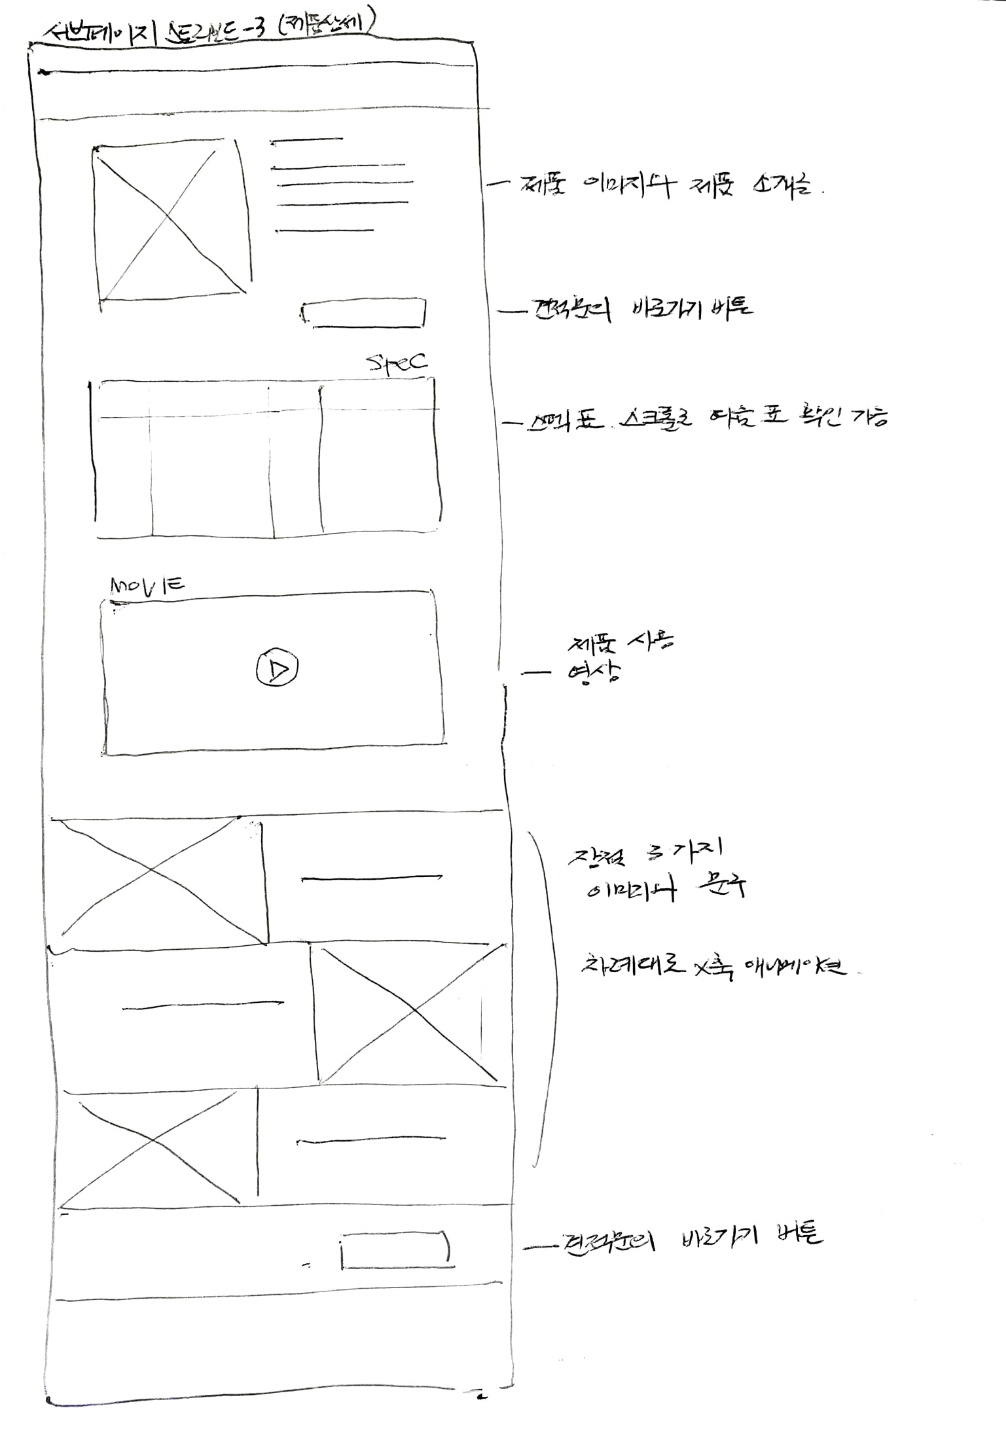 서브페이지 스토리보드-3 (제품상세)
제품 이미지와 제품 소개글.
견적문의 바로가기 버튼
SPEC
스펙 표. 스크롤로 다음 표 확인 가능
MOVIE
제품 사용
영상
장점 3가지
이미지와 문구
차례대로 x축 애니메이션.
견적문의 바로가기 버튼